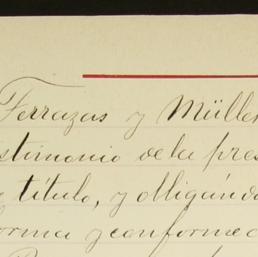 Terrazas y Müller
stimonio de la pres
título, y obligánd
orma y conforme